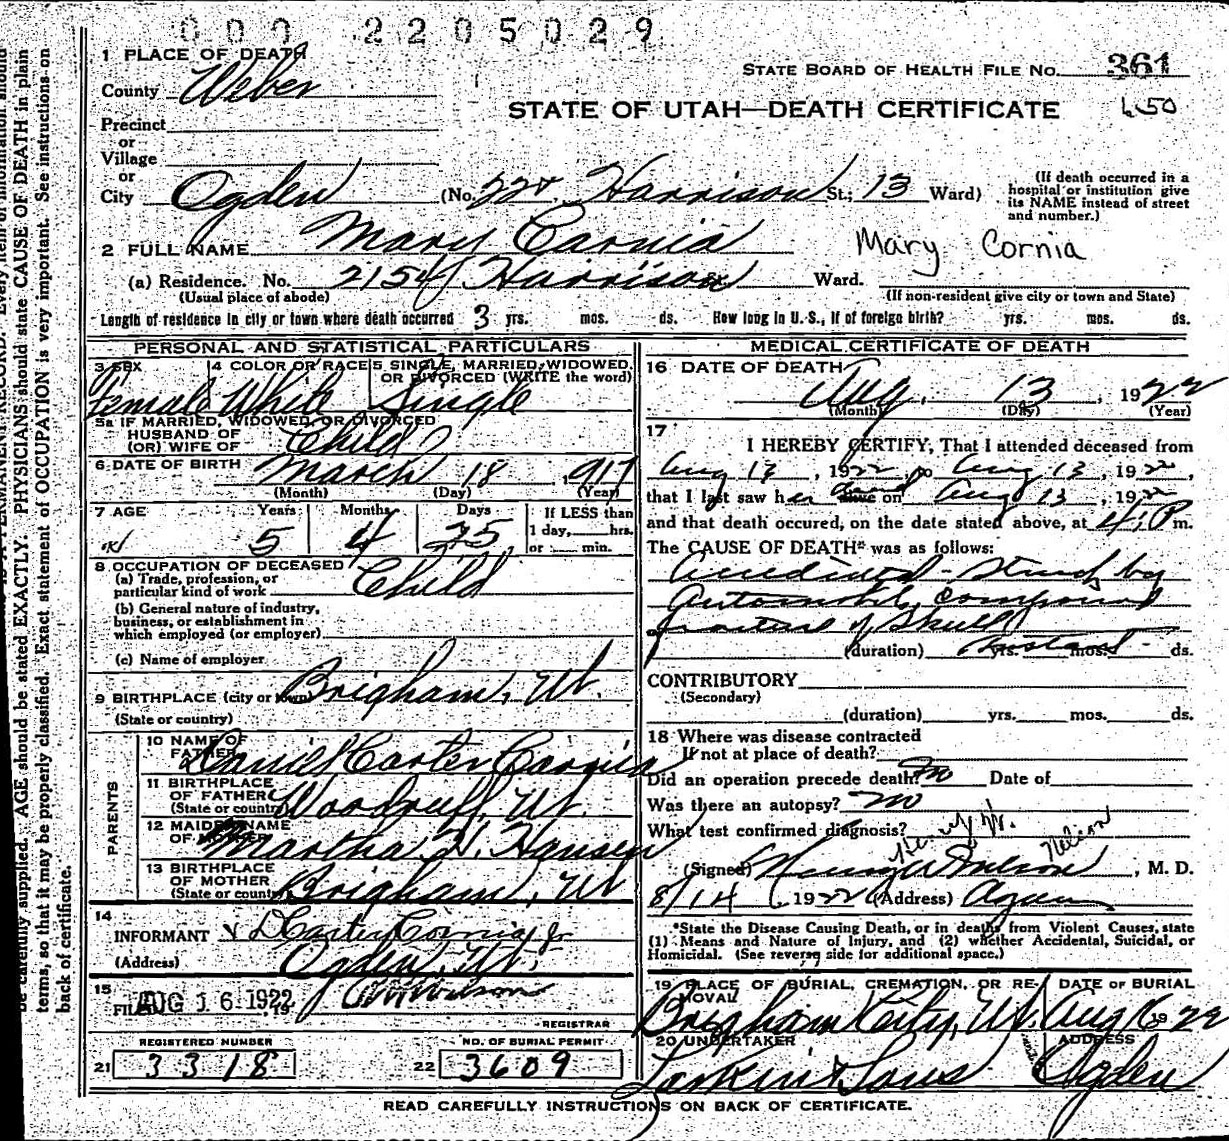 000 2205029
1 PLACE OF DEATH
County Weber
STATE BOARD OF HEALTH FILE NO. 361
STATE OF UTAH—DEATH CERTIFICATE 650
Precinct
or
Village
or
City Ogden (No. Harrison St.; 13 Ward)
(If death occurred in a hospital or institution give its NAME instead of street and number.)
2 FULL NAME Mary Cornia Mary Cornia
(a) Residence. No. 2154 Harrison Ward.
(Usual place of abode) (If non-resident give city or town and State)
Length of residence in city or town where death occurred 3 yrs. mos. ds. How long in U. S., if of foreign birth? yrs. mos. ds.
PERSONAL AND STATISTICAL PARTICULARS
3 SEX 4 COLOR OR RACE 5 SINGLE, MARRIED, WIDOWED, OR DIVORCED (WRITE the word)
Female White Single
5a IF MARRIED, WIDOWED, OR DIVORCED
HUSBAND OF
(OR) WIFE OF Child
6 DATE OF BIRTH March 18, 917
(Month) (Day) (Year)
7 AGE Years Months Days If LESS than
5 4 25 1 day, hrs.
or min.
8 OCCUPATION OF DECEASED
(a) Trade, profession, or
particular kind of work Child
(b) General nature of industry,
business, or establishment in
which employed (or employer)
(c) Name of employer
9 BIRTHPLACE (city or town) Brigham, Ut.
(State or country)
PARENTS
10 NAME OF
FATHER Carter Cornia
11 BIRTHPLACE
OF FATHER
(State or country) Woodruff, Ut.
12 MAIDEN NAME
OF MOTHER Martha H. Hansen
13 BIRTHPLACE
OF MOTHER
(State or country) Brigham, Ut
14
INFORMANT D Carter Cornia Jr
(Address) Ogden, Ut.
15
FILED AUG 16 1922, 19 Wilson
REGISTRAR
REGISTERED NUMBER NO. OF BURIAL PERMIT
21 3318 22 3609
MEDICAL CERTIFICATE OF DEATH
16 DATE OF DEATH
Aug. 13, 1922
(Month) (Day) (Year)
17
I HEREBY CERTIFY, That I attended deceased from
Aug 13, 1922, to Aug 13, 1922,
that I last saw her alive on Aug 13, 1922
and that death occured, on the date stated above, at P m.
The CAUSE OF DEATH* was as follows:
Accidental - Struck by
Automobile, compound
fracture of skull
(duration) Instant yrs. mos. ds.
CONTRIBUTORY
(Secondary)
(duration) yrs. mos. ds.
18 Where was disease contracted
If not at place of death?
Did an operation precede death? no Date of
Was there an autopsy? no
What test confirmed diagnosis?
Henry W. Nelson
(Signed) Henry W Nelson, M. D.
8/14, 1922 (Address) Ogden
*State the Disease Causing Death, or in deaths from Violent Causes, state
(1) Means and Nature of Injury, and (2) whether Accidental, Suicidal, or
Homicidal. (See reverse side for additional space.)
19 PLACE OF BURIAL, CREMATION, OR RE- DATE OF BURIAL
MOVAL
Brigham City, Ut. Aug 16 1922
20 UNDERTAKER ADDRESS
Larkin & Sons Ogden
READ CAREFULLY INSTRUCTIONS ON BACK OF CERTIFICATE.
be carefully supplied. AGE should be stated EXACTLY. PHYSICIANS should state CAUSE OF DEATH in plain
terms, so that it may be properly classified. Exact statement of OCCUPATION is very important. See instructions on
back of certificate.